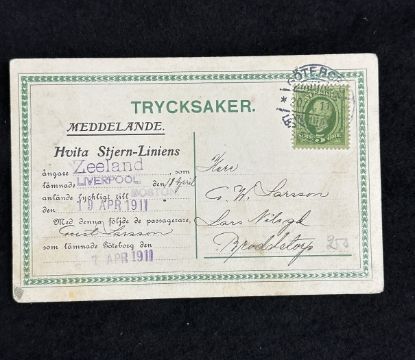 GÖTEBORG
TRYCKSAKER.
MEDDELANDE.
Hvita Stjern-Liniens
ångare Zeeland, som
lämnade LIVERPOOL den 18 April
anlände lyckligt till BOSTON
den 19 APR 1911
Med denna följde de passagerare,
Larsson
som lämnade Göteborg den
7 APR 1911
Herr
C. W. Larsson
Lars
Broddetorp
5 ÖRE 5